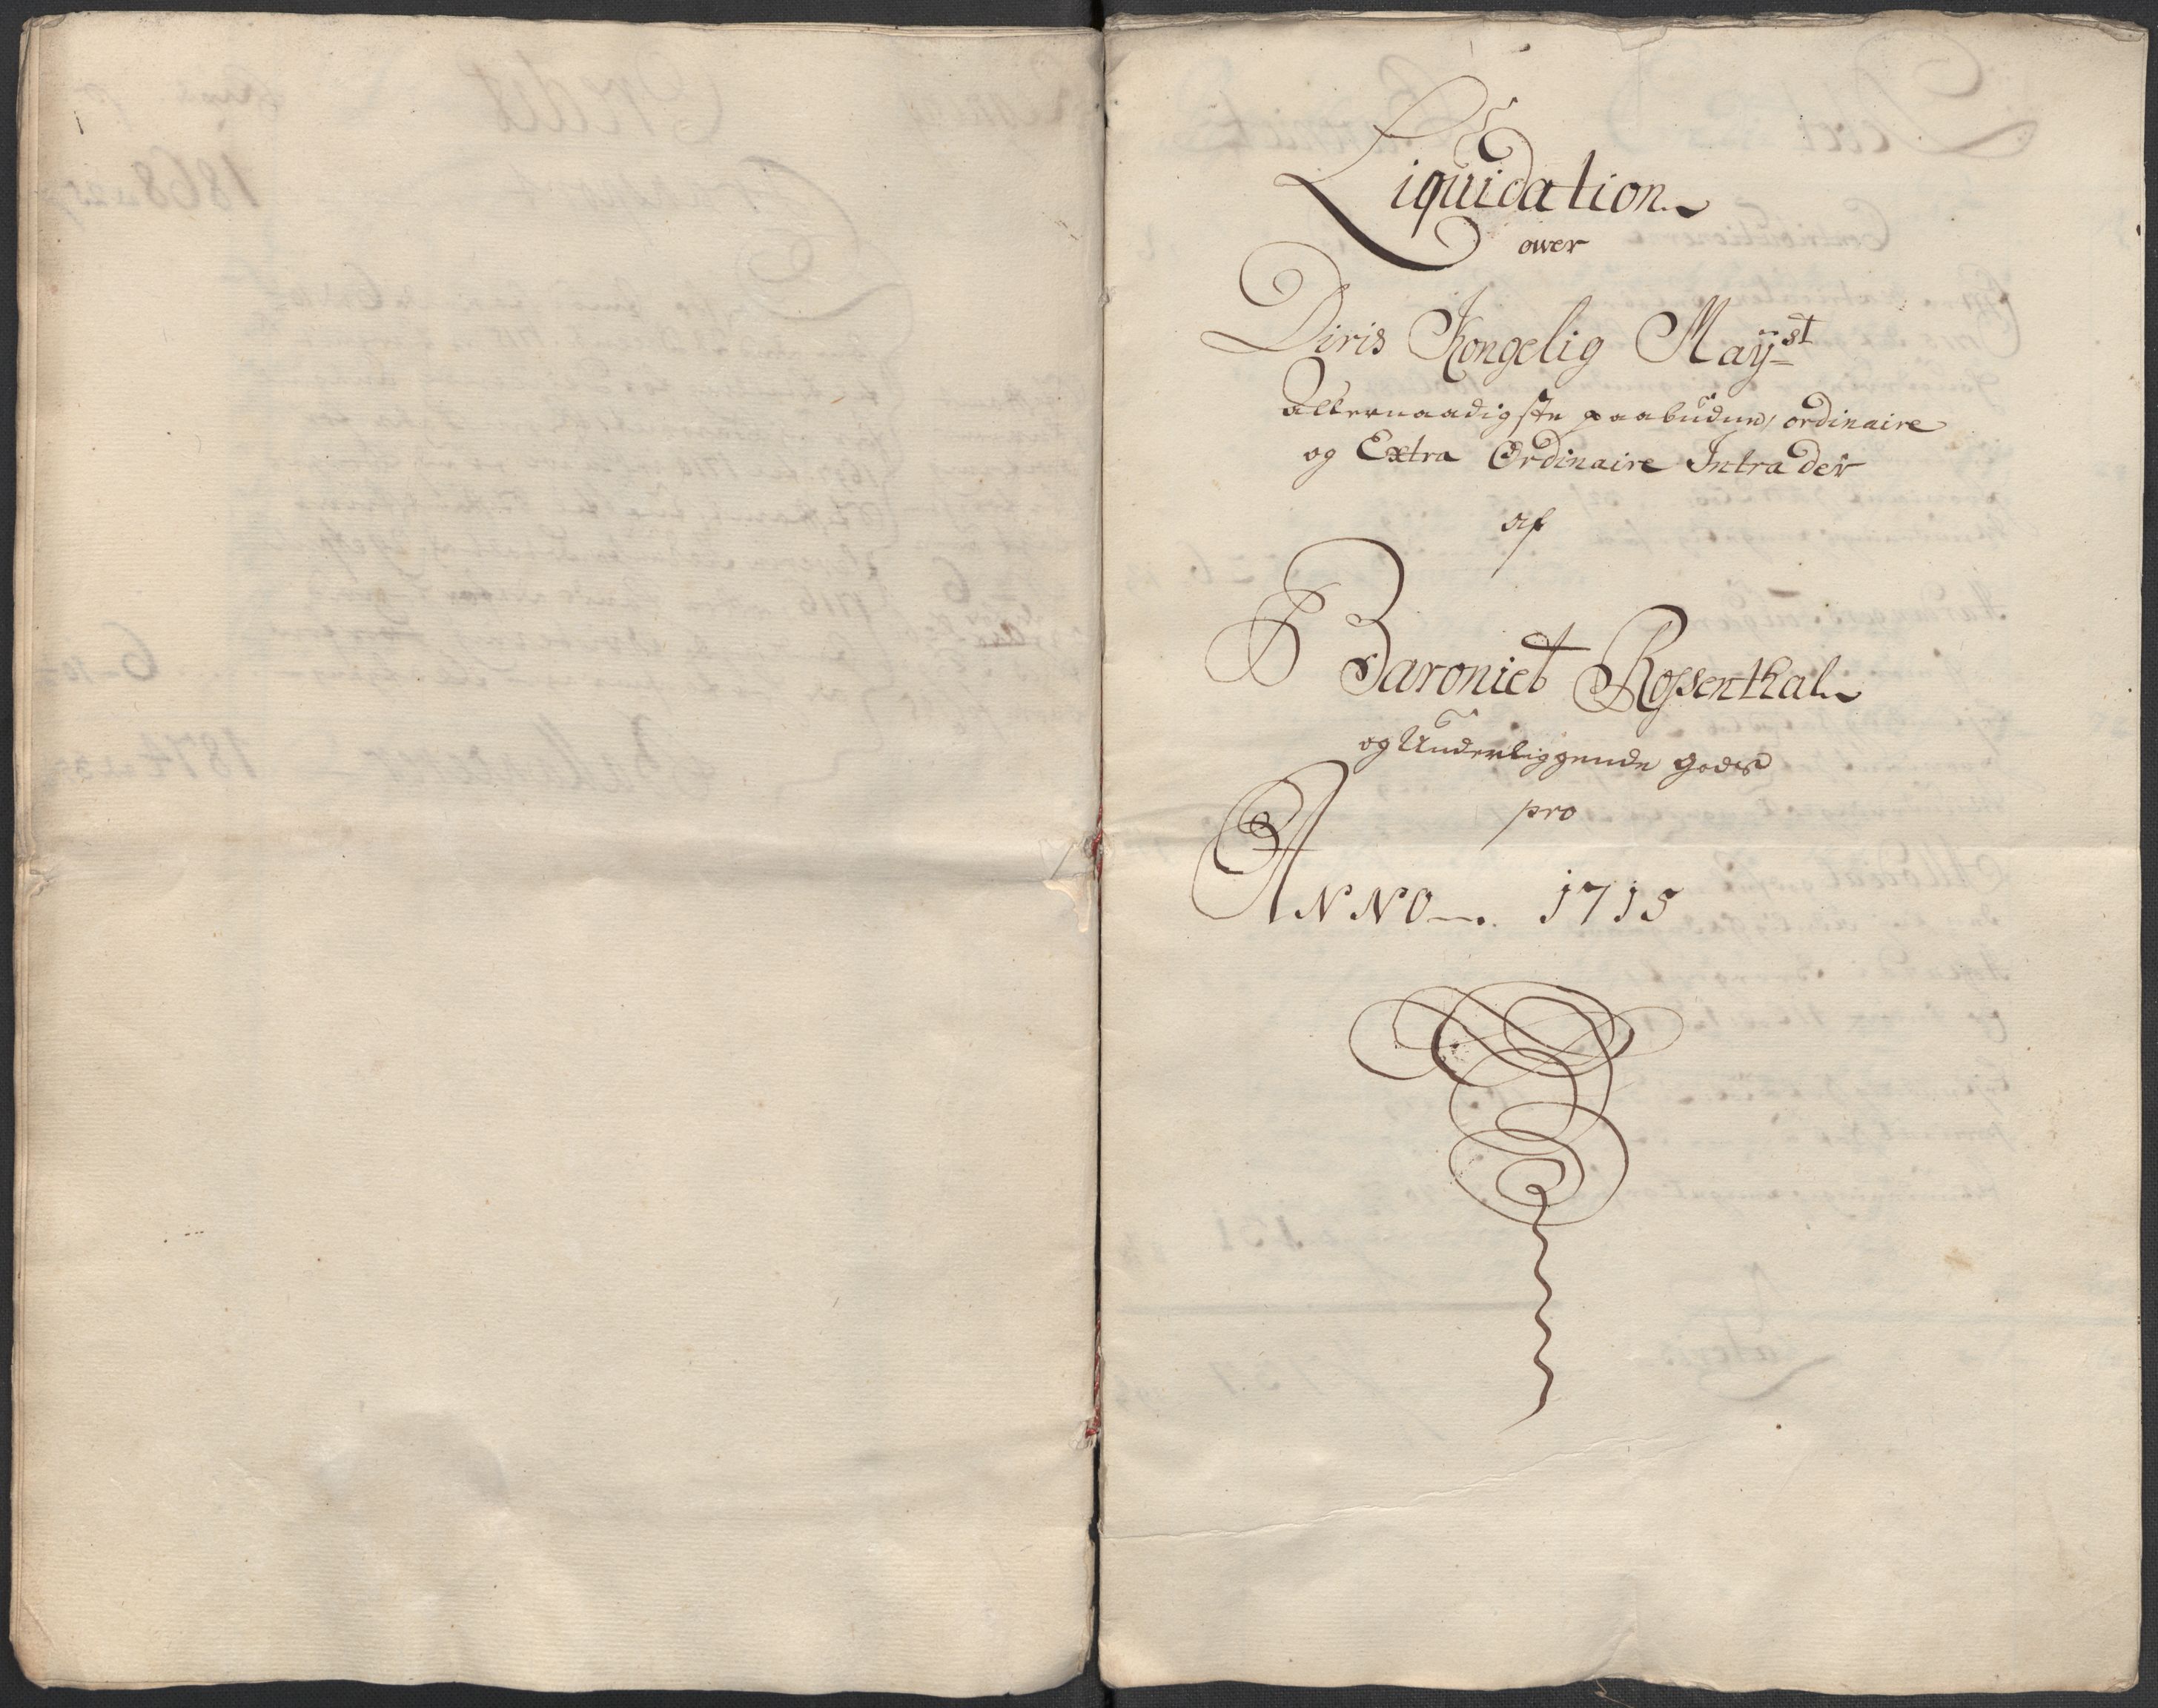 Liquidation
over
Diris Kongelig Mayst
Allernaadigste paabudne, ordinaire
og Extra Ordinaire Intrader
af
Baroniet Rossenthal
og Underliggende Gods
pro
ANNO 1715